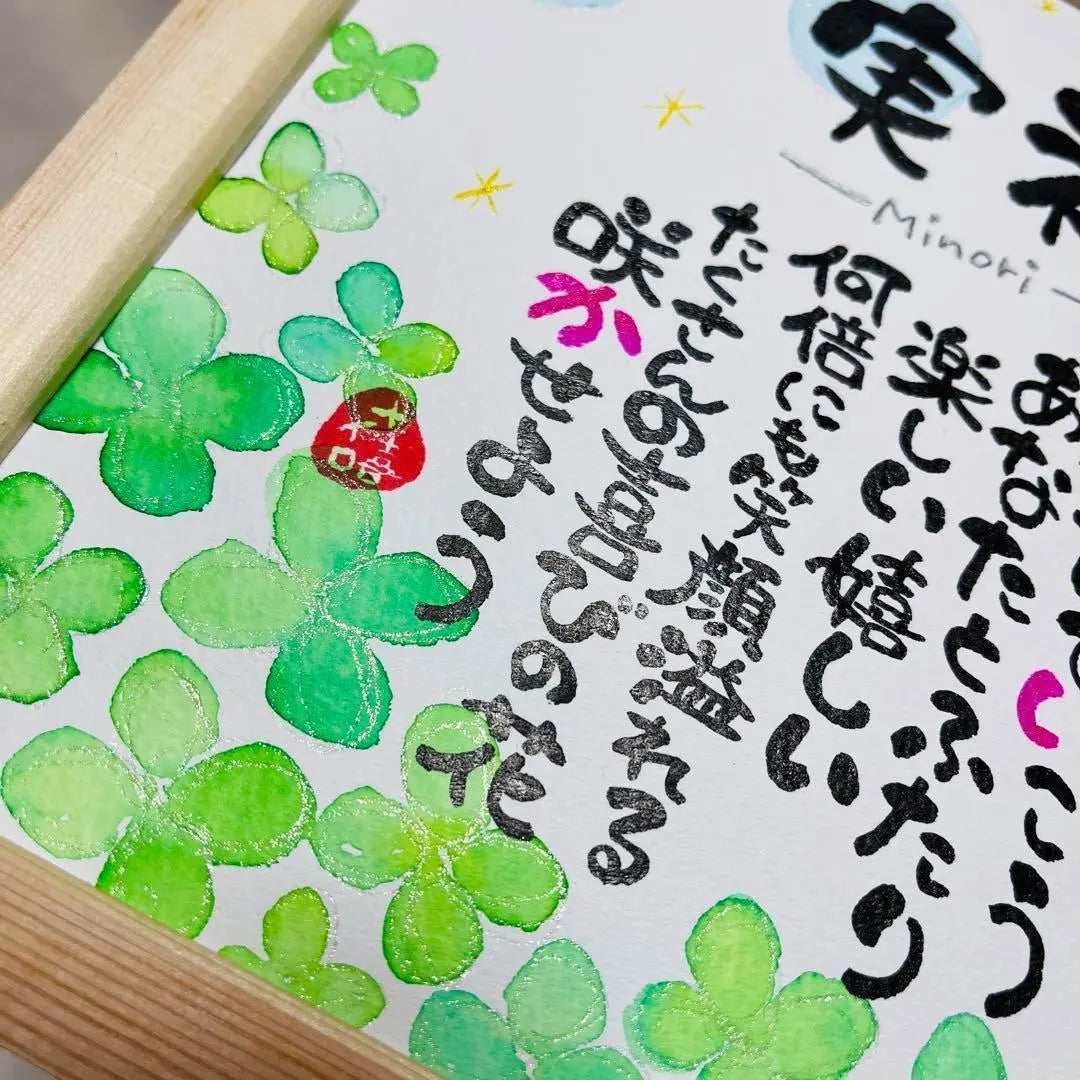 実
Minori
あなたとふたり
楽しい嬉しい
何倍にも笑顔溢れる
たくさんの喜びの花
咲かせよう